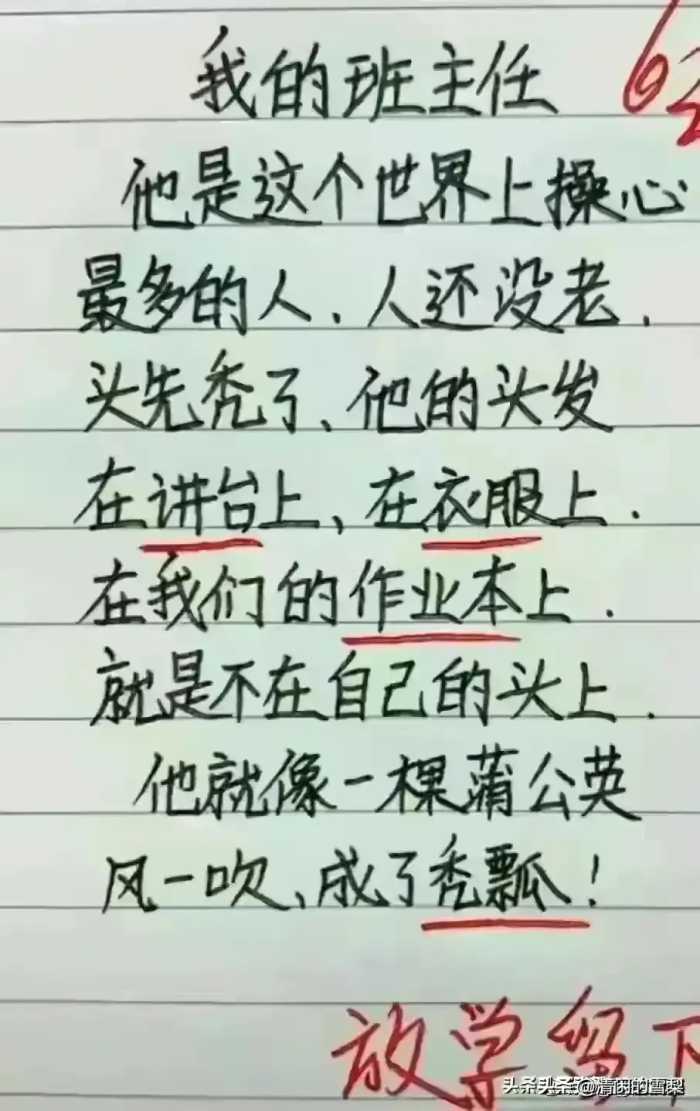 我的班主任
他是这个世界上操心
最多的人、人还没老.
头先秃了、他的头发
在讲台上、在衣服上.
在我们的作业本上.
就是不在自己的头上.
他就像一棵蒲公英
风一吹、成了秃瓢!
放学留下